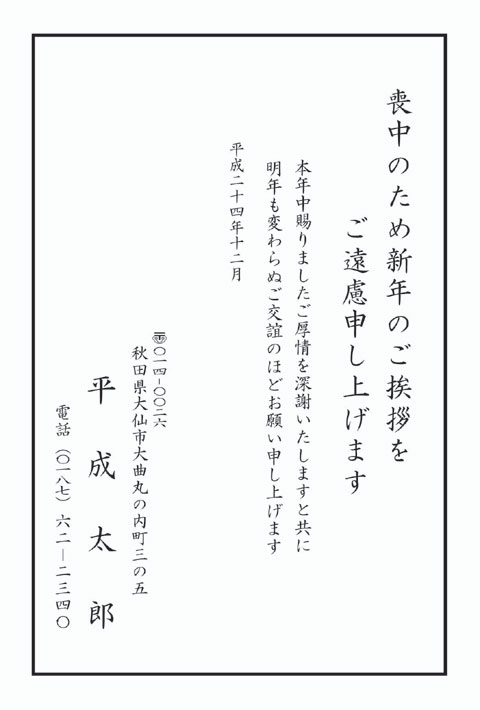 喪中のため新年のご挨拶を
ご遠慮申し上げます
本年中賜りましたご厚情を深謝いたしますと共に
明年も変わらぬご交誼のほどお願い申し上げます
平成二十四年十二月
〒〇一四-〇〇二六
秋田県大仙市大曲丸の内町三の五
平成太郎
電話（〇一八七）六二―二三四〇